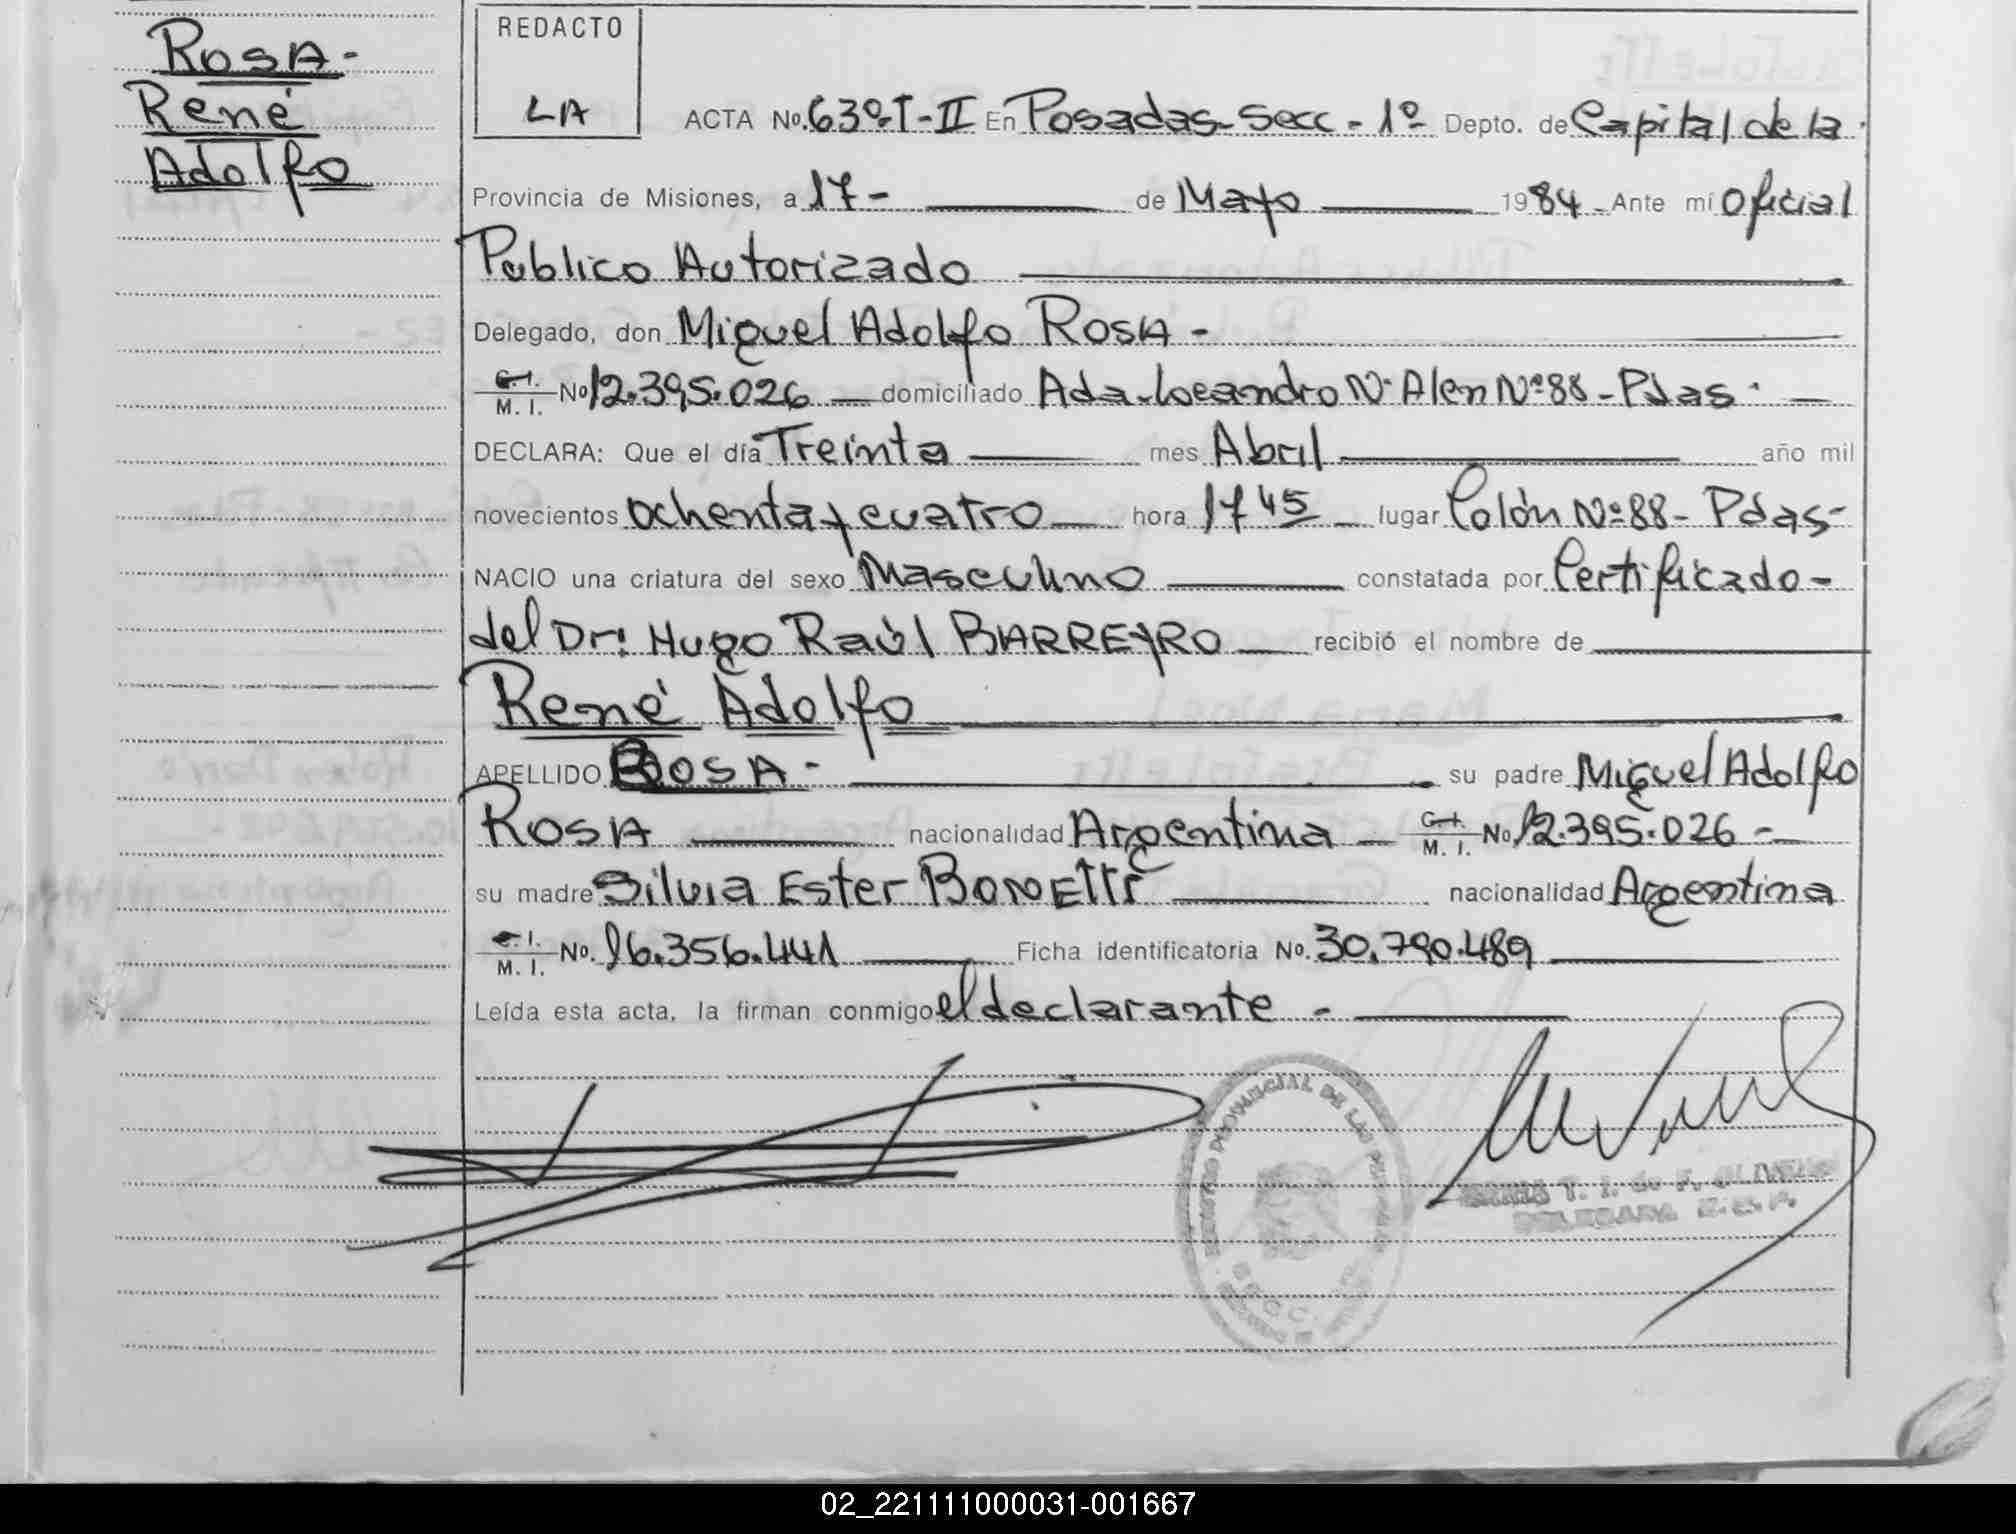 ROSA-
René
Adolfo
REDACTO
LA
ACTA No. 639. T-II En Posadas-Secc-1º Depto. de Capital de la
Provincia de Misiones, a 17- de Mayo 1984 Ante mí Oficial
Publico Autorizado
Delegado, don Miguel Adolfo ROSA-
C.I. M. I. No 12.395.026 domiciliado Ada-Loeandro N. Alen Nº88-Pdas-
DECLARA: Que el día Treinta mes Abril año mil
novecientos ochenta y cuatro hora 17 45 lugar Colón Nº88-Pdas-
NACIO una criatura del sexo Masculino constatada por Certificado-
del Dr: Hugo Raúl BARREYRO recibió el nombre de
René Adolfo
APELLIDO ROSA- su padre Miguel Adolfo
ROSA nacionalidad Argentina C.I. M. I. No. 12.395.026-
su madre Silvia Ester BONETTI nacionalidad Argentina
C.I. M. I. No. 16.356.441 Ficha identificatoria No. 30.790.489
Leída esta acta, la firman conmigo el declarante -
REGISTRO PROVINCIAL DE LAS PERSONAS
T. I. de F. OLIVEIRA
DELEGADA
02_221111000031-001667